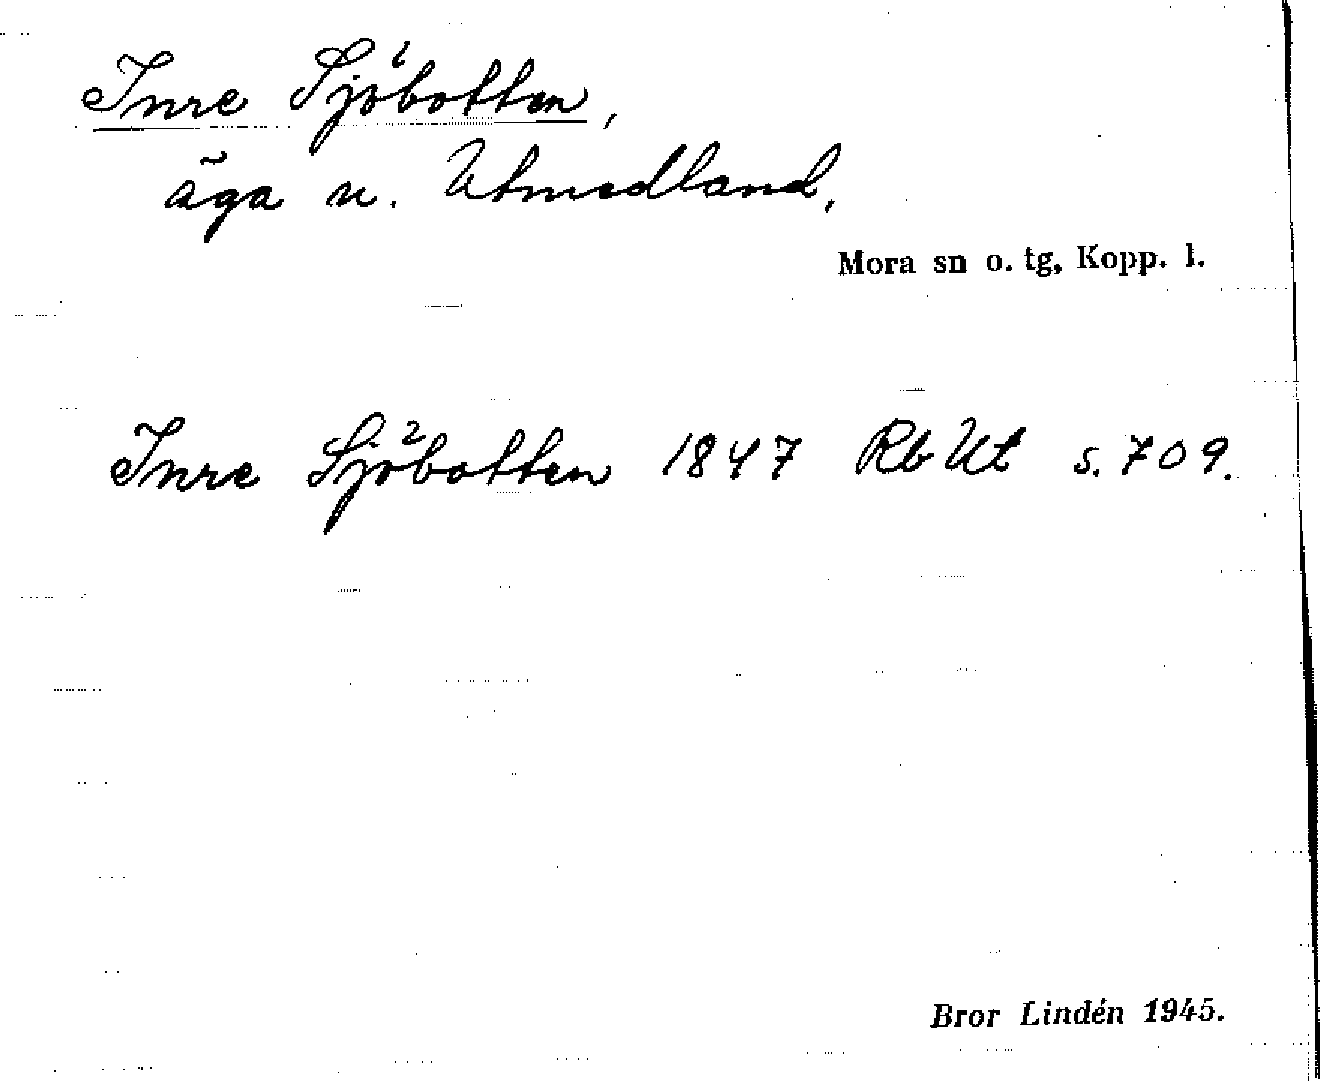 Inre Sjöbotten,
äga u. Utmedland,
Mora sn o. tg, Kopp. l.
Inre Sjöbotten 1847 Rb Ut s. 709.
Bror Lindén 1945.